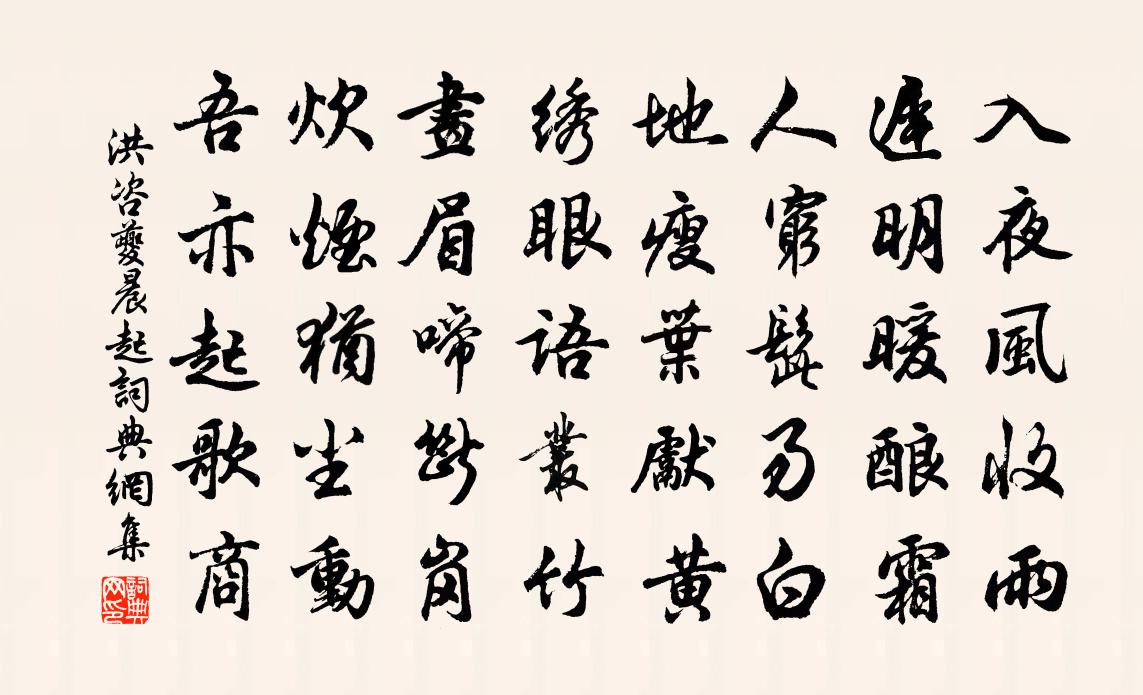 入夜風收雨
遲明暖酿霜
人窮髭易白
地瘦葉獻黃
绣眼語叢竹
畫眉啼斷岗
炊煙犹坐動
吾亦起歌商
洪咨夔晨起詞典網集
詞典網印